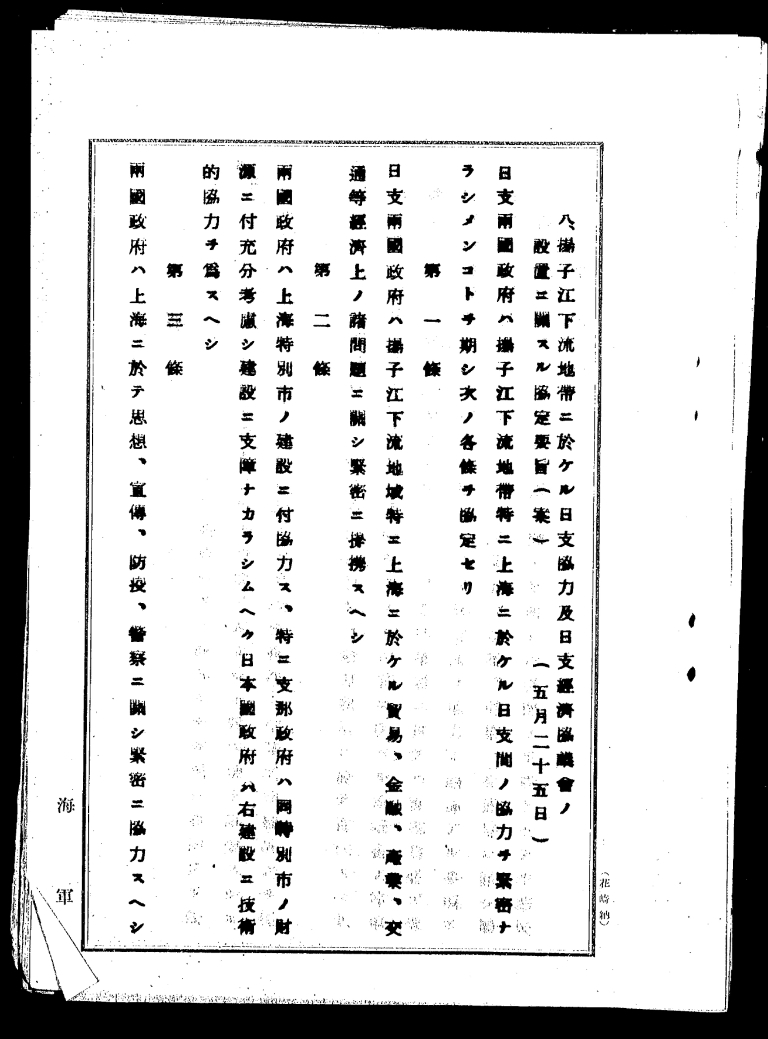 八、揚子江下流地帶ニ於ケル日支協力及日支經濟協議會ノ
設置ニ關スル協定要旨(案)　(五月二十五日)
日支兩國政府ハ揚子江下流地帶特ニ上海ニ於ケル日支間ノ協力ヲ緊密ナ
ラシメンコトヲ期シ次ノ各條ヲ協定セリ
第一條
日支兩國政府ハ揚子江下流地域特ニ上海ニ於ケル貿易、金融、產業、交
通等經濟上ノ諸問題ニ關シ緊密ニ提携スヘシ
第二條
兩國政府ハ上海特別市ノ建設ニ付協力ス、特ニ支那政府ハ同特別市ノ財
源ニ付充分考慮シ建設ニ支障ナカラシムヘク日本國政府ハ右建設ニ技術
的協力ヲ爲スヘシ
第三條
兩國政府ハ上海ニ於テ思想、宣傳、防疫、警察ニ關シ緊密ニ協力スヘシ
海軍